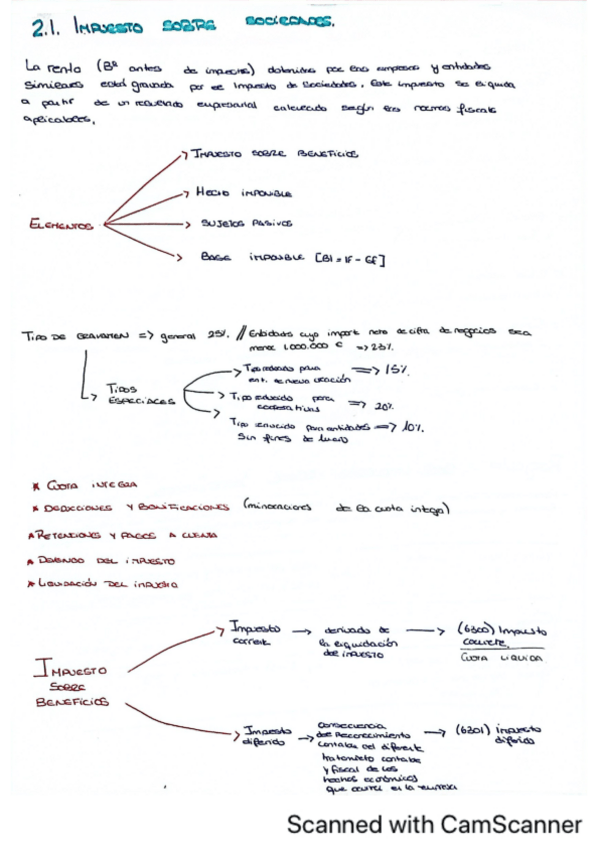 2.1. IMPUESTO SOBRE SOCIEDADES.
La renta (Bº antes de impuestos) obtenidas por las empresas y entidades
similares está gravada por el Impuesto de Sociedades. Este impuesto se liquida
a partir de un resultado empresarial calculado según las normas fiscales
aplicables.
ELEMENTOS
→ IMPUESTO SOBRE BENEFICIOS
→ HECHO IMPONIBLE
→ SUJETOS PASIVOS
→ BASE IMPONIBLE [BI = IF - GF]
TIPO DE GRAVAMEN => general 25%. // Entidades cuyo import. neto de cifra de negocios sea
menor 1.000.000 € => 23%.
TIPOS
ESPECIALES
→ Tipo reducido para => 15%.
ent. de nueva creación
→ Tipo reducido para => 20%.
cooperativas
→ Tipo reducido para entidades => 10%.
sin fines de lucro
* CUOTA INTEGRA
* DEDUCCIONES Y BONIFICACIONES (minoraciones de la cuota integra)
* RETENCIONES Y PAGOS A CUENTA
* DEVENGO DEL IMPUESTO
* LIQUIDACIÓN DEL IMPUESTO
IMPUESTO
SOBRE
BENEFICIOS
→ Impuesto → derivado de → (6300) Impuesto
corriente la liquidación corriente.
del impuesto CUOTA LIQUIDA
→ Impuesto diferido → consecuencia → (6301) impuesto
del reconocimiento diferido
contable del diferente
tratamiento contable
y fiscal de los
hechos económicos
que ocurren en la empresa
Scanned with CamScanner